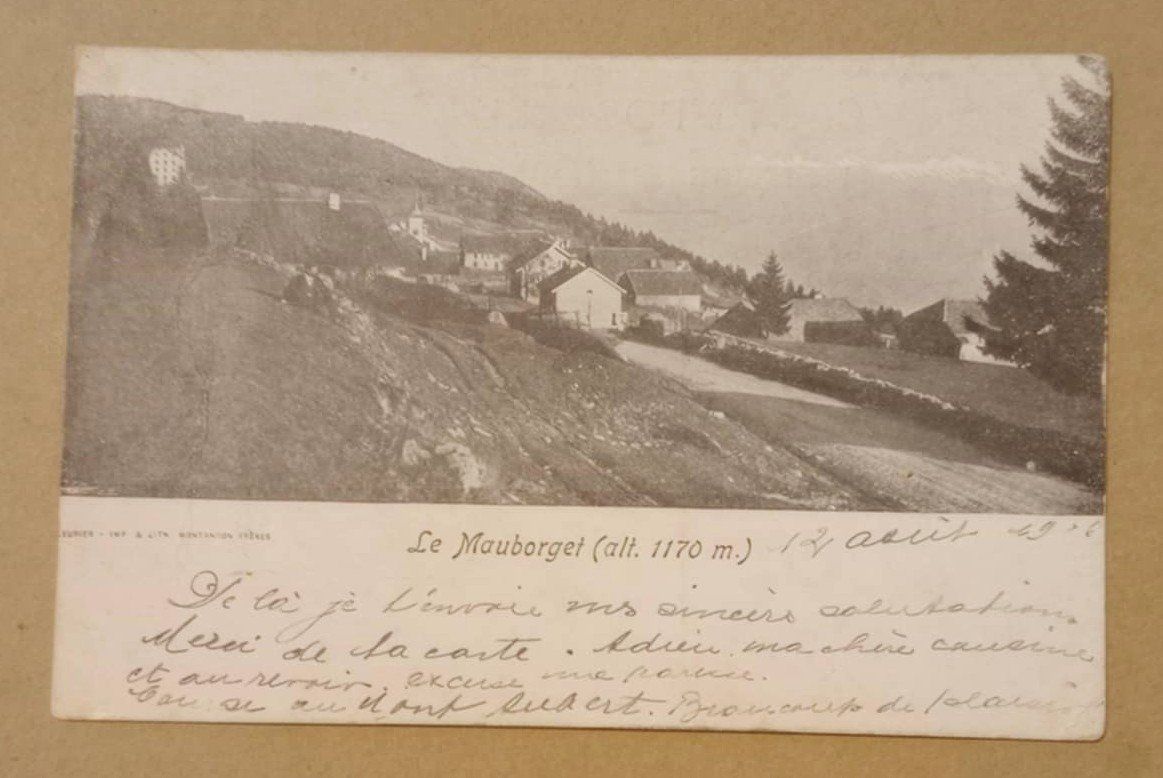 EURIER - IMP. & LITH. MONTANDON FRÈRES
Le Mauborget (alt. 1170 m.)
12 août 19
De là je t'envoie mes sincère salutations
Merci de ta carte. Adieu ma chère cousine
et au revoir, excuse me
au Mont Aubert. Beaucoup de plaisir